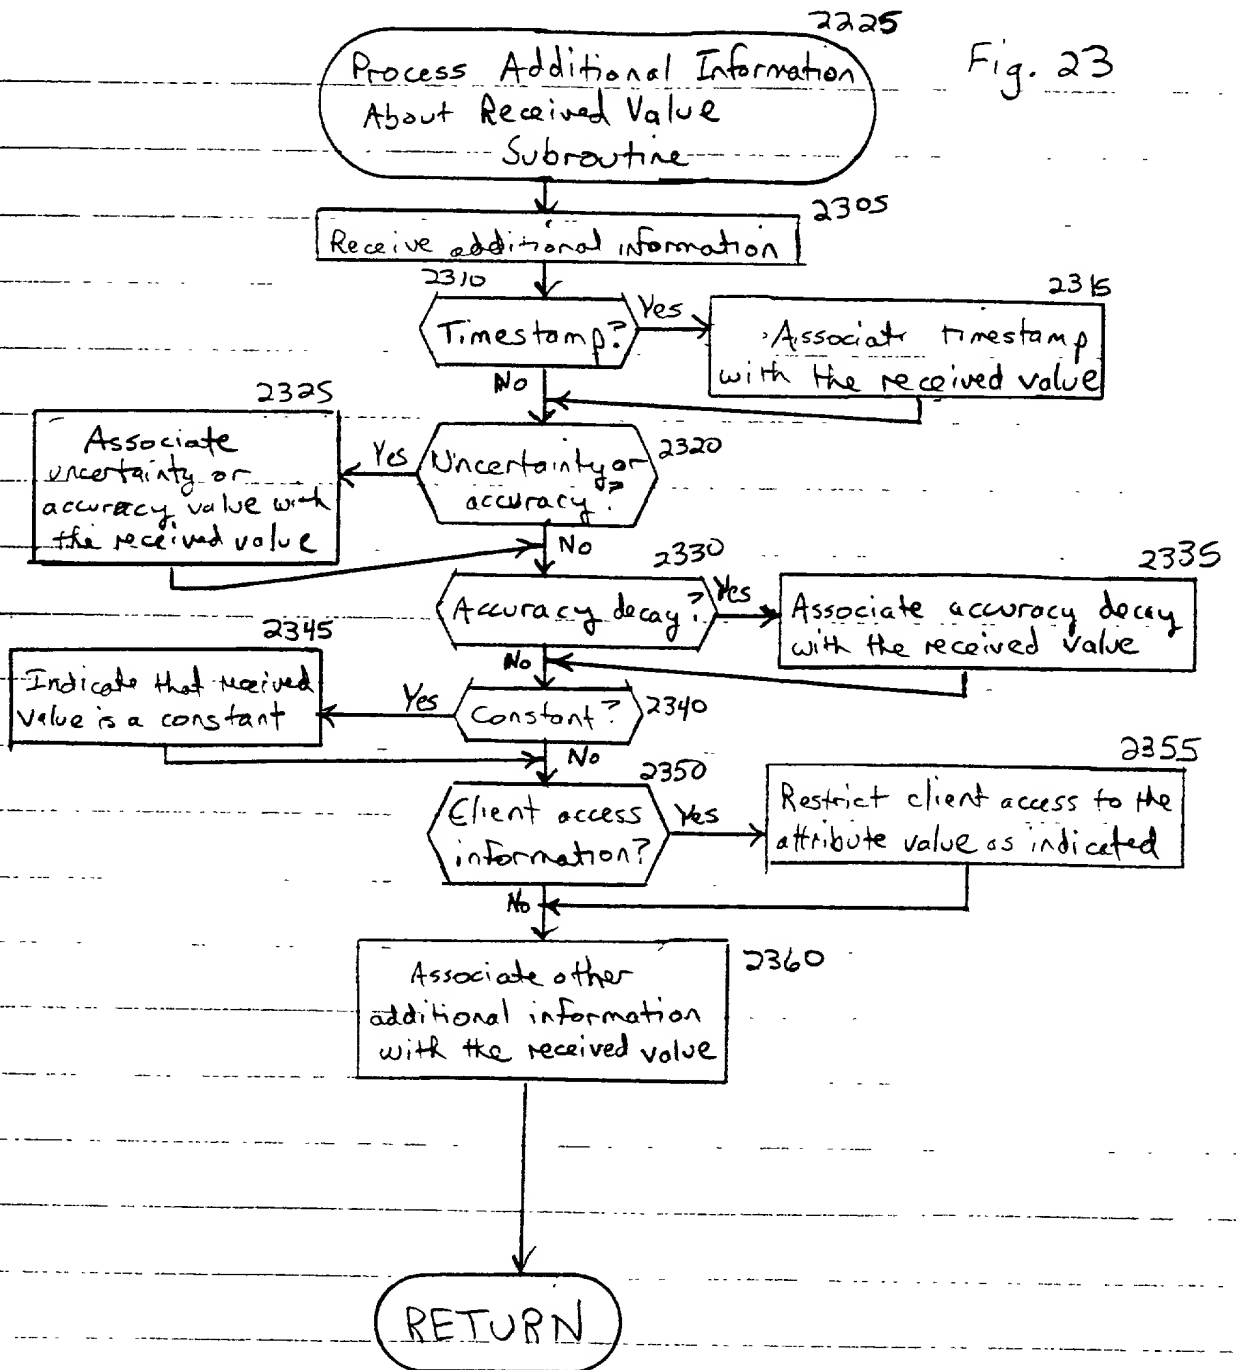 2225
Fig. 23
Process Additional Information
About Received Value
Subroutine
2305
Receive additional information
2310
Timestamp?
Yes
No
2315
Associate timestamp
with the received value
2325
Associate
uncertainty or
accuracy value with
the received value
Yes
Uncertainty or
accuracy?
2320
No
2330
Accuracy decay?
Yes
No
2335
Associate accuracy decay
with the received value
2345
Indicate that received
value is a constant
Yes
Constant?
2340
No
2350
Client access
information?
Yes
No
2355
Restrict client access to the
attribute value as indicated
2360
Associate other
additional information
with the received value
RETURN